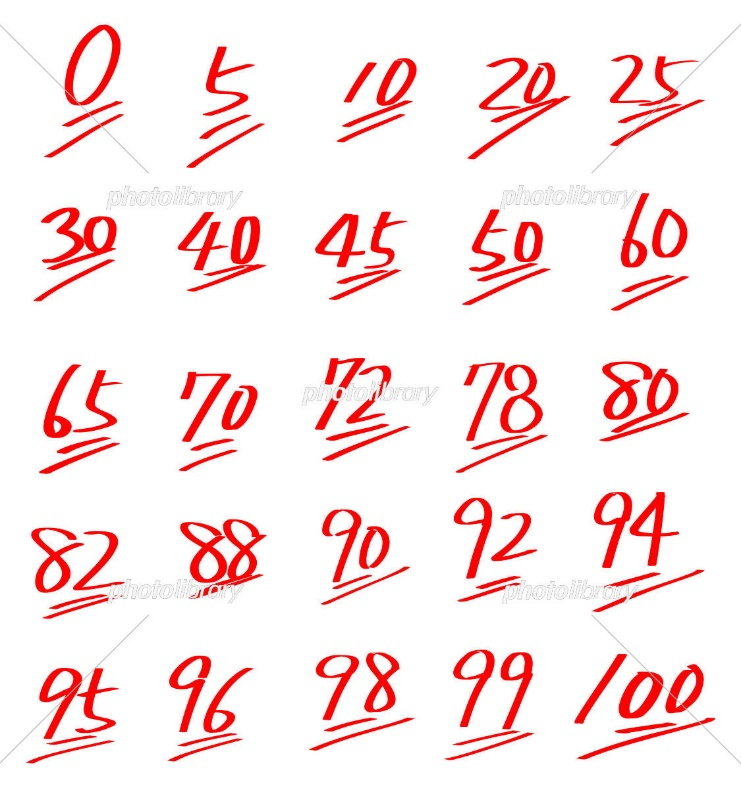 0 5 10 20 25
photolibrary photolibrary
30 40 45 50 60
65 70 72 78 80
photolibrary
82 88 90 92 94
photolibrary photolibrary
95 96 98 99 100